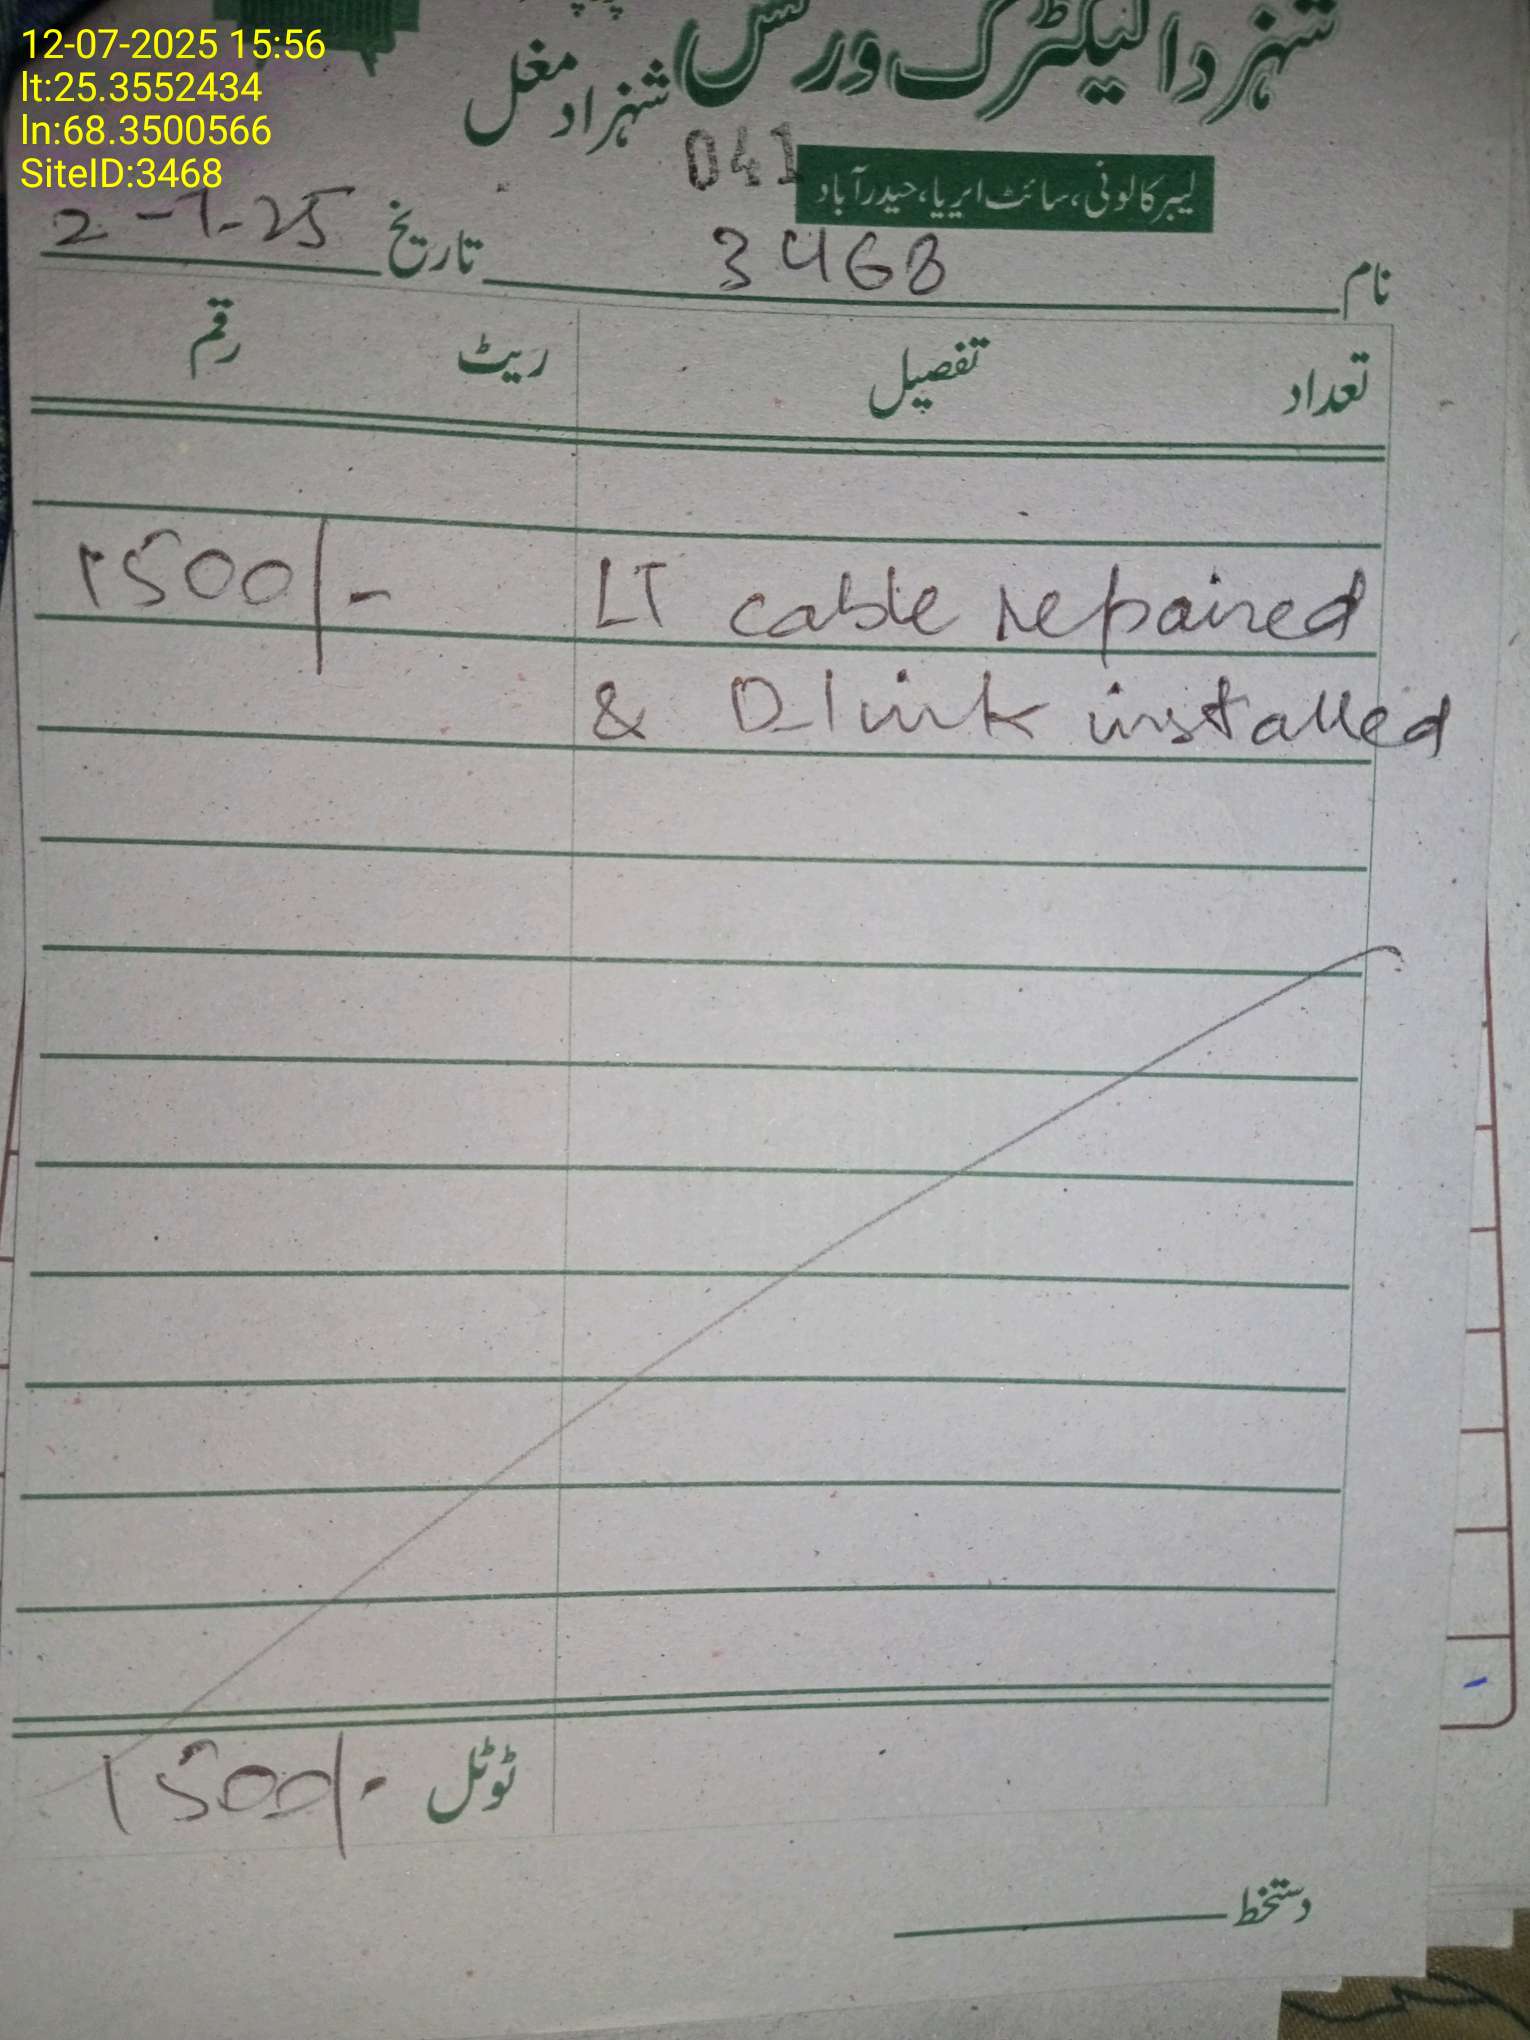 12-07-2025 15:56
lt:25.3552434
ln:68.3500566
SiteID:3468
شہزاد الیکٹرک ورکس
شہزاد مغل
041
لیبر کالونی، سائٹ ایریا، حیدرآباد
نام 3468 تاریخ 2-7-25
تعداد تفصیل ریٹ رقم
LT cable repaired 1500/-
& D-link installed
ٹوٹل 1500/-
دستخط